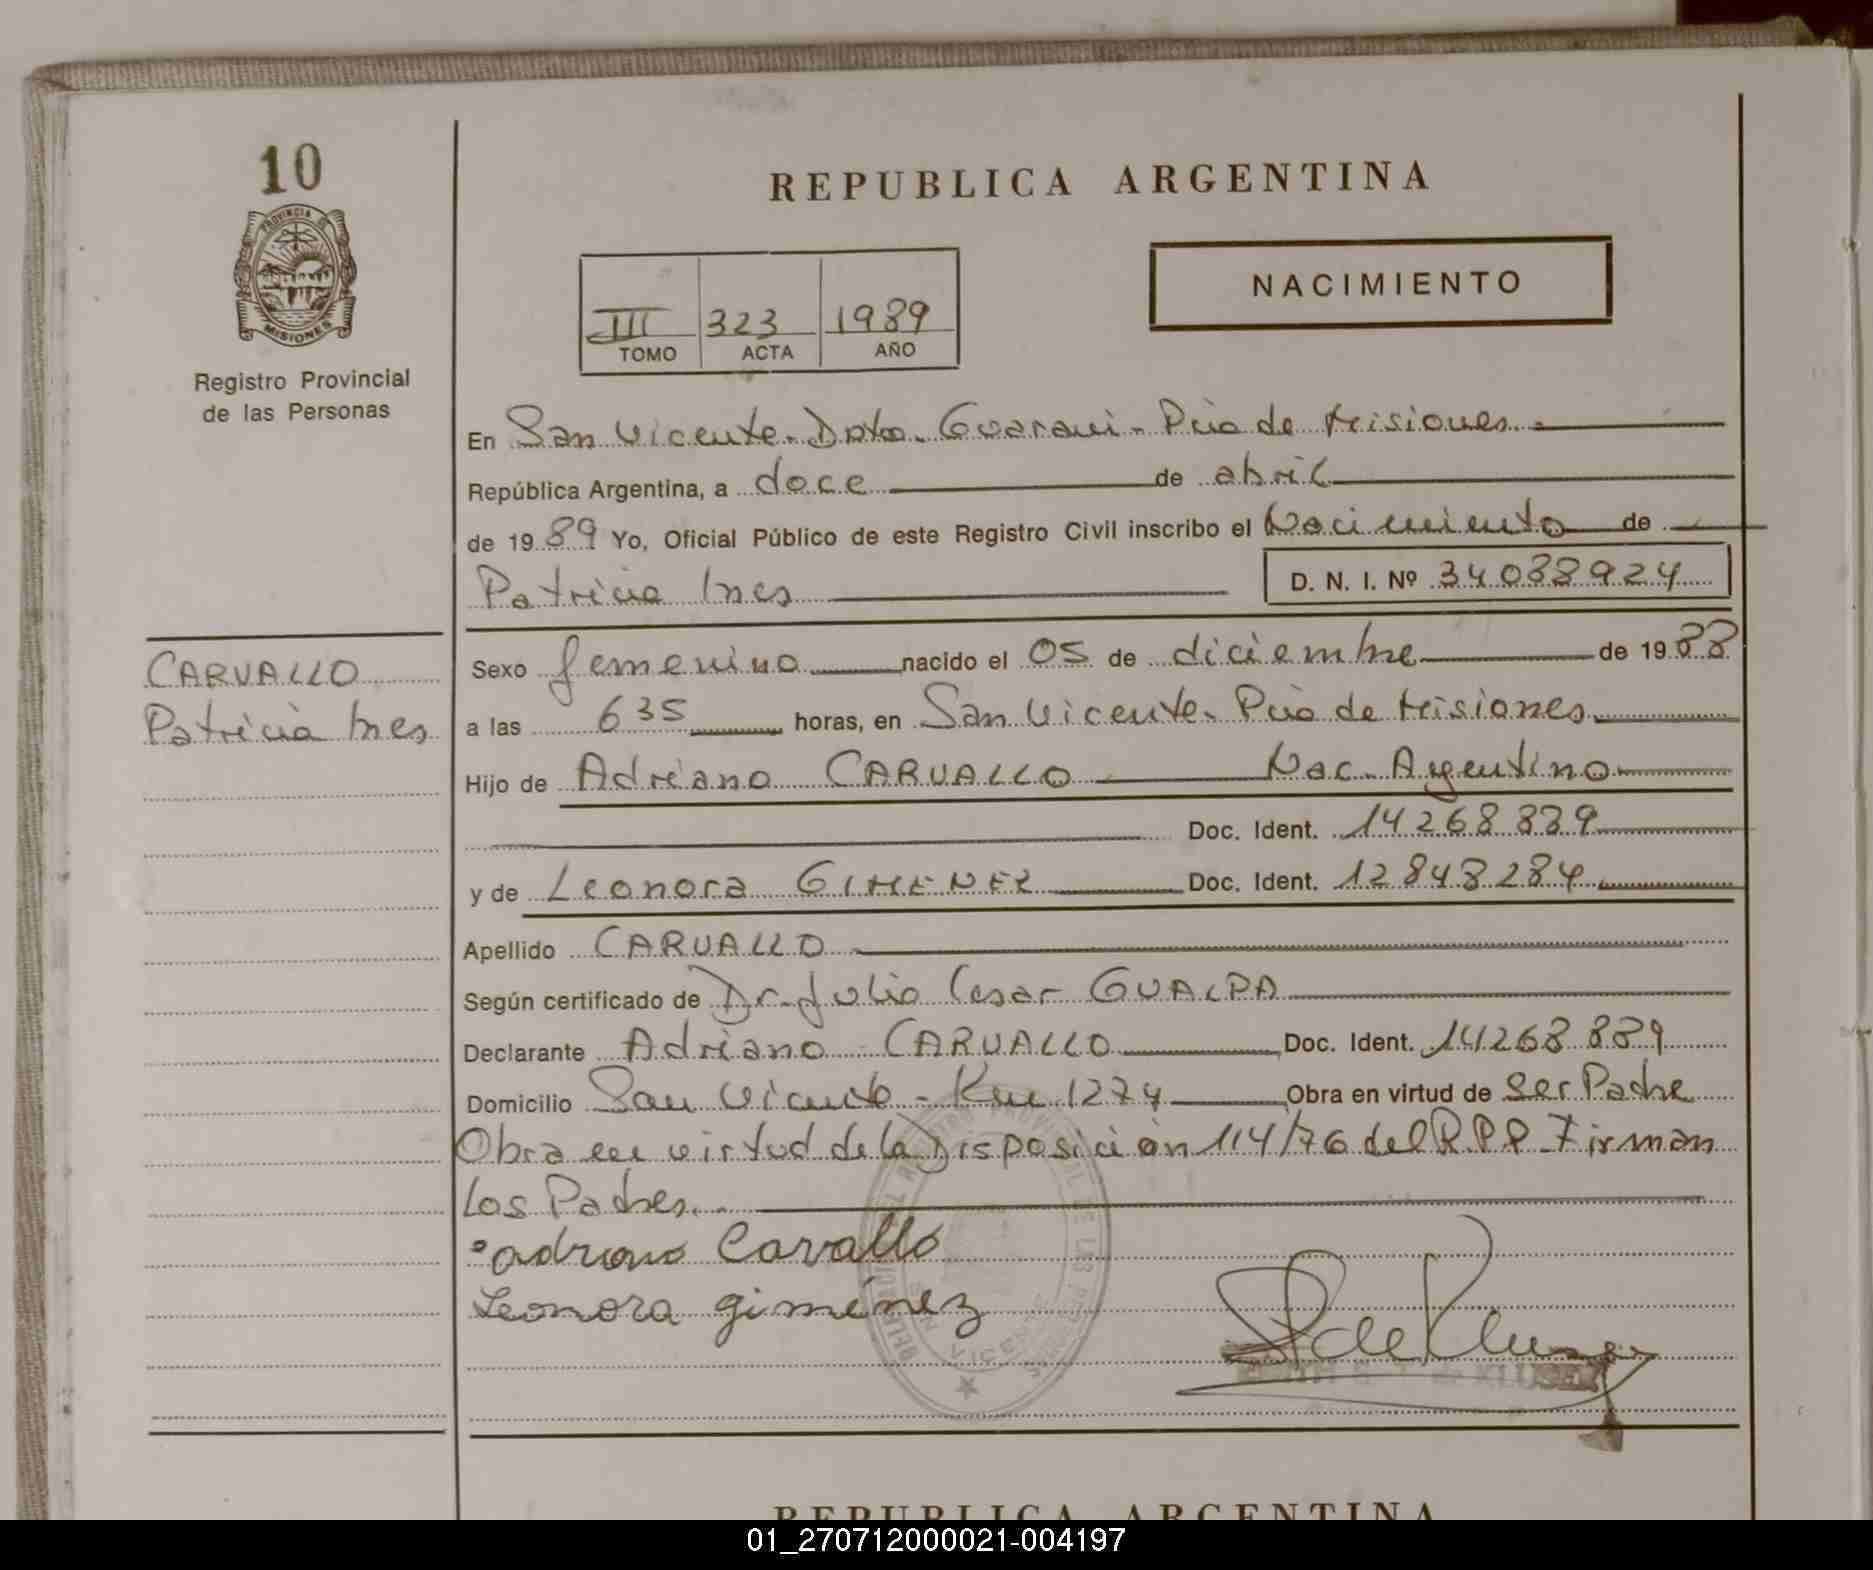 10
PROVINCIA DE
MISIONES
Registro Provincial
de las Personas
CARVALLO
Patricia Ines
REPUBLICA ARGENTINA
NACIMIENTO
III 323 1989
TOMO ACTA AÑO
En San Vicente - Dpto. Guarani - Pcia de Misiones
República Argentina, a doce de abril
de 1989 Yo, Oficial Público de este Registro Civil inscribo el Nacimiento de
Patricia Ines D. N. I. Nº 34088924
Sexo femenino nacido el 05 de diciembre de 1988
a las 635 horas, en San Vicente - Pcia de Misiones
Hijo de Adriano CARVALLO Nac. Argentino
Doc. Ident. 14268889
y de Leonora GIMENEZ Doc. Ident. 12848284
Apellido CARVALLO
Según certificado de Dr. Julio Cesar GUALPA
Declarante Adriano CARVALLO Doc. Ident. 14268889
Domicilio San Vicente - Km 1274 Obra en virtud de Ser Padre
Obra en virtud de la Disposición 114/76 del R.P.P. Firman
los Padres.
adriano Carvallo
Leonora giménez
de KLUSER
REPUBLICA ARGENTINA
01_270712000021-004197